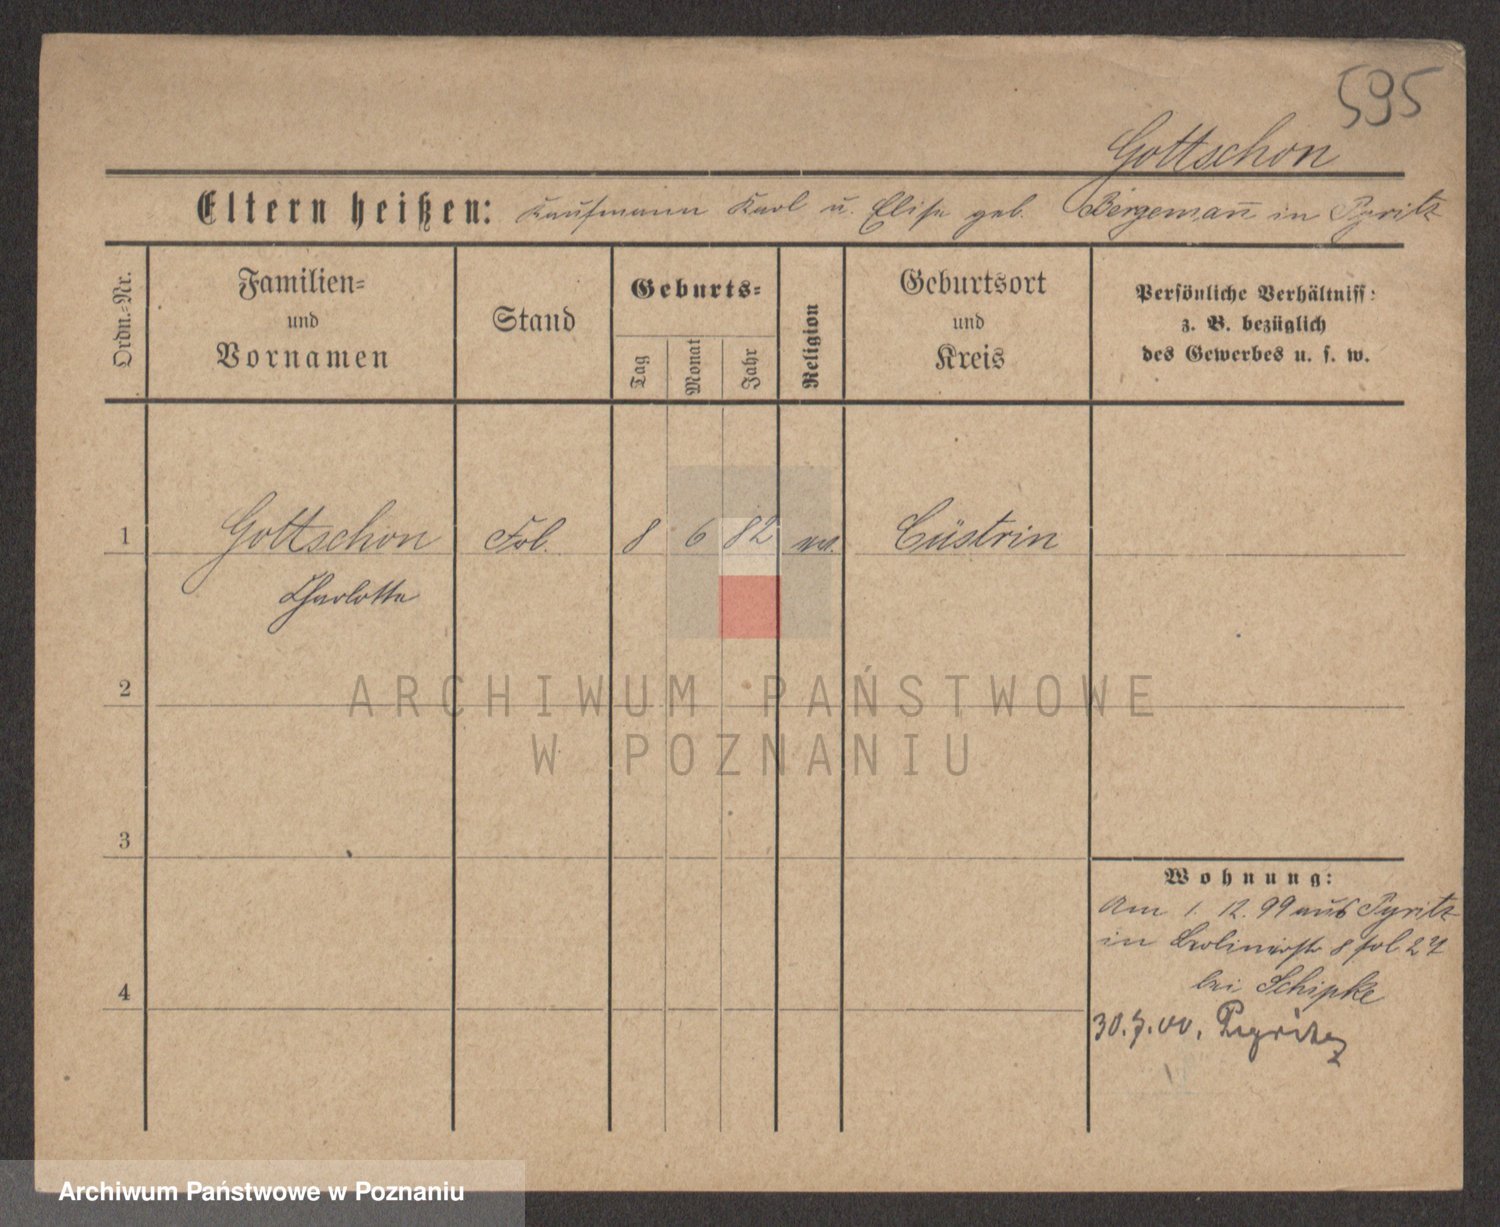 595
Gottschon
Eltern heißen: Kaufmann Karl u. Elise geb. Bergemañ in Pyritz
Ordn.-Nr.
Familien-
und
Vornamen
Stand
Geburts-
Tag
Monat
Jahr
Religion
Geburtsort
und
Kreis
Persönliche Verhältniss:
z. B. bezüglich
des Gewerbes u. s. w.
1 Gottschon Frl. 8 6 82 ev. Cüstrin
Charlotte
2
3
4
Wohnung:
Am 1. 12. 99 aus Pyritz
in Berlinerstr 8 fol 27
bei Schipke
30.7.00. Pyritz
ARCHIWUM PAŃSTWOWE
W POZNANIU
Archiwum Państwowe w Poznaniu